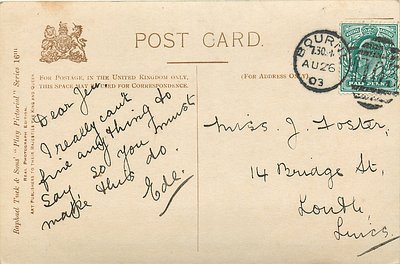 POST CARD.
FOR POSTAGE, IN THE UNITED KINGDOM ONLY,
THIS SPACE MAY BE USED FOR CORRESPONDENCE.
(FOR ADDRESS ONLY.)
Raphael Tuck & Sons' "Play Pictorial" Series 16
ART PUBLISHERS TO THEIR MAJESTIES THE KING AND QUEEN.
BOURN
7.30
AU 26
03
HALFPENNY
Dear Jen
I really can't
find anything to
say so you must
make this do.
Ede.
Miss. J. Foster,
14 Bridge St,
Louth,
Lincs.